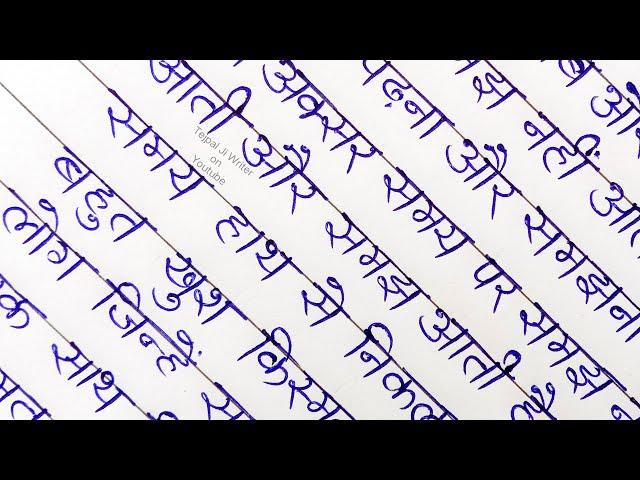 और
नहीं
पढ़ना और समझना
अक्सर समय पर समझ
आती और समझ आती है
समय हाथ से
बहुत खुश
लोग जिन्हें
साथ
Tejpal Ji Writer
on
Youtube